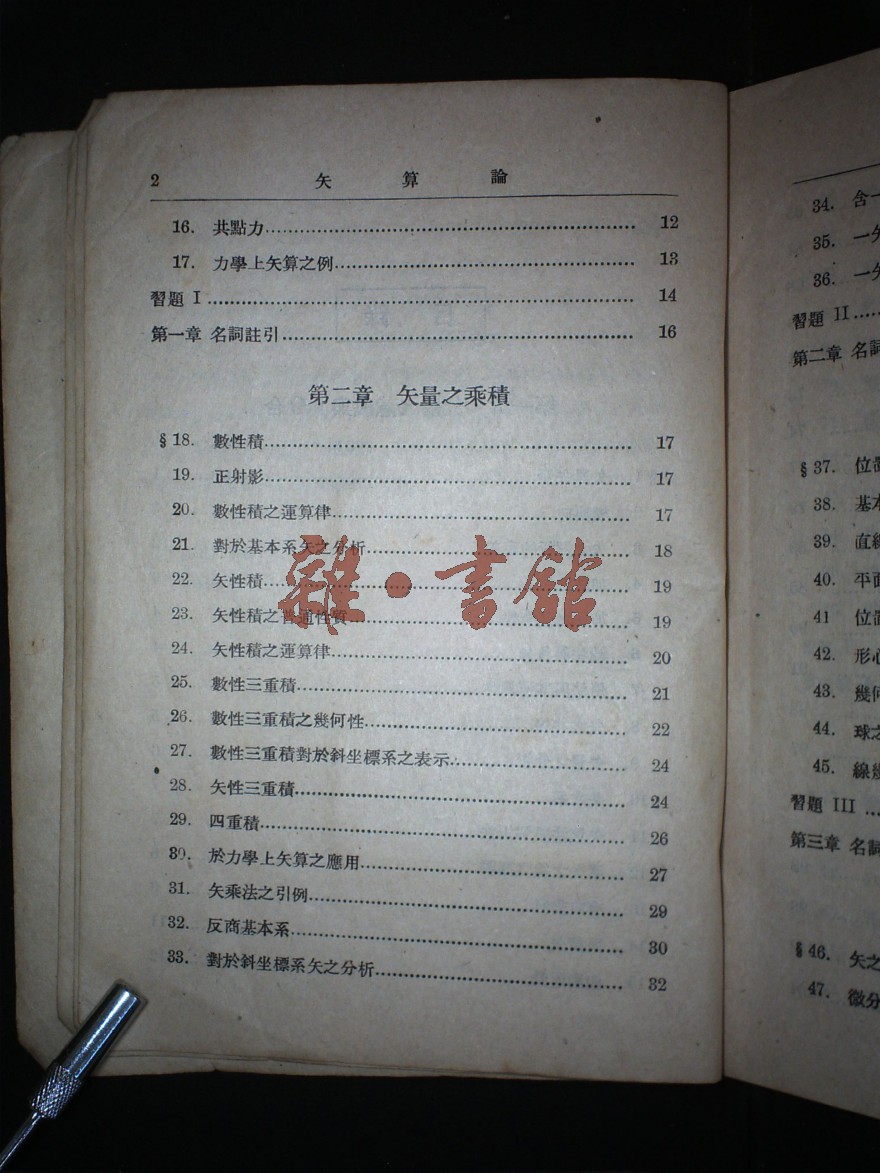 2 矢算論
16. 共點力 12
17. 力學上矢算之例 13
習題 I 14
第一章 名詞註引 16
第二章 矢量之乘積
§18. 數性積 17
19. 正射影 17
20. 數性積之運算律 17
21. 對於基本系矢之分析 18
22. 矢性積 19
23. 矢性積之普通性質 19
24. 矢性積之運算律 20
25. 數性三重積 21
26. 數性三重積之幾何性 22
27. 數性三重積對於斜坐標系之表示 24
28. 矢性三重積 24
29. 四重積 26
30. 於力學上矢算之應用 27
31. 矢乘法之引例 29
32. 反商基本系 30
33. 對於斜坐標系矢之分析 32
雜·書館
34. 含一
35. 一矢
36. 一矢
習題 II
第二章 名詞
§37. 位置
38. 基本
39. 直線
40. 平面
41 位置
42. 形心
43. 幾何
44. 球之
45. 線幾
習題 III
第三章 名詞
§46. 矢之
47. 微分